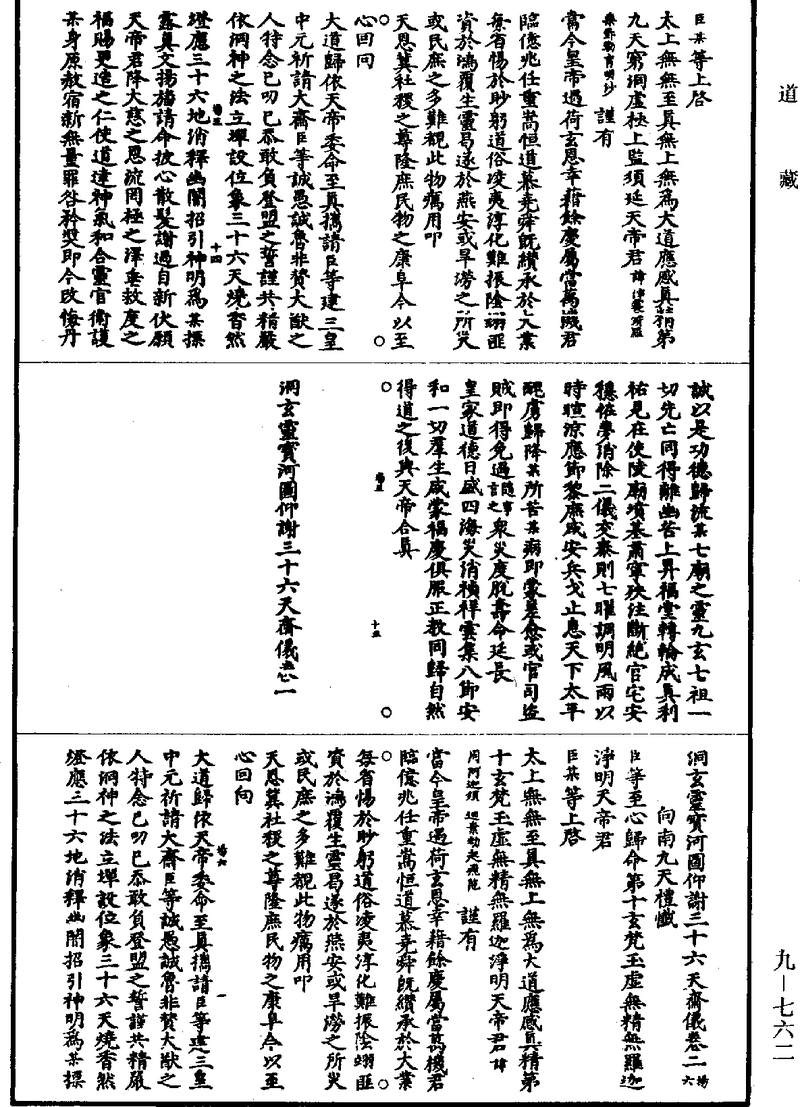 道藏
臣某等上啓
太上無無至真無上無為大道應感真精第
九天窮洞虛極上監須廷天帝君諱
謹有
當今皇帝遇荷玄恩幸藉餘慶屬當萬機君
臨億兆任重嵩恒道慕堯舜既纘承於大業
每省惕於眇躬道俗凌夷淳化難振陰翊匪
資於鴻覆生靈曷遂於燕安或旱澇之所災
或民庶之多難覩此物癘用叩
天恩冀社稷之尊隆庶民物之康阜今以至
心回向
大道歸依天帝委命至真擕請臣等建三皇
中元祈請大齋臣等誠愚誠魯非贊大猷之
人特念已叨已忝敢負登盟之誓謹共精嚴
依洞神之法立壇設位象三十六天燒香然
燈應三十六地消釋幽闇招引神明為某操
露真文揚旛請命披心散髮謝過自新伏願
天帝君降大慈之恩流罔極之澤垂救度之
福賜更造之仁使道達神氣和合靈官衛護
某身原赦宿新無量罪咎矜奬即今改悔丹
誠以是功德歸流某七廟之靈九玄七祖一
切先亡同得離幽苦上昇福堂轉輪成真利
祐見在使陵廟墳墓肅寧殃注斷絕官宅安
穩侏孽消除二儀交泰則七曜調明風雨以
時暄涼應節黎庶咸安兵戈止息天下太平
醜虜歸降某所苦某病即蒙差愈或官司盜
賊即得免過隨事言之衆災度脫壽命延長
皇家道德日盛四海災消禎祥雲集八節安
和一切羣生咸蒙福慶俱服正教同歸自然
得道之後與天帝合真
洞玄靈寶河圖仰謝三十六天齋儀卷一
洞玄靈寶河圖仰謝三十六天齋儀卷二
向南九天禮懺
臣等至心歸命第十玄梵玉虛無精無羅迦
淨明天帝君
臣某等上啓
太上無無至真無上無為大道應感真精第
十玄梵玉虛無精無羅迦淨明天帝君諱
謹有
當今皇帝遇荷玄恩幸藉餘慶屬當萬機君
臨億兆任重嵩恒道慕堯舜既纘承於大業
每省惕於眇躬道俗凌夷淳化難振陰翊匪
資於鴻覆生靈曷遂於燕安或旱澇之所災
或民庶之多難覩此物癘用叩
天恩冀社稷之尊隆庶民物之康阜今以至
心回向
大道歸依天帝委命至真擕請臣等建三皇
中元祈請大齋臣等誠愚誠魯非贊大猷之
人特念已叨已忝敢負登盟之誓謹共精嚴
依洞神之法立壇設位象三十六天燒香然
燈應三十六地消釋幽闇招引神明為某操
九－七六二